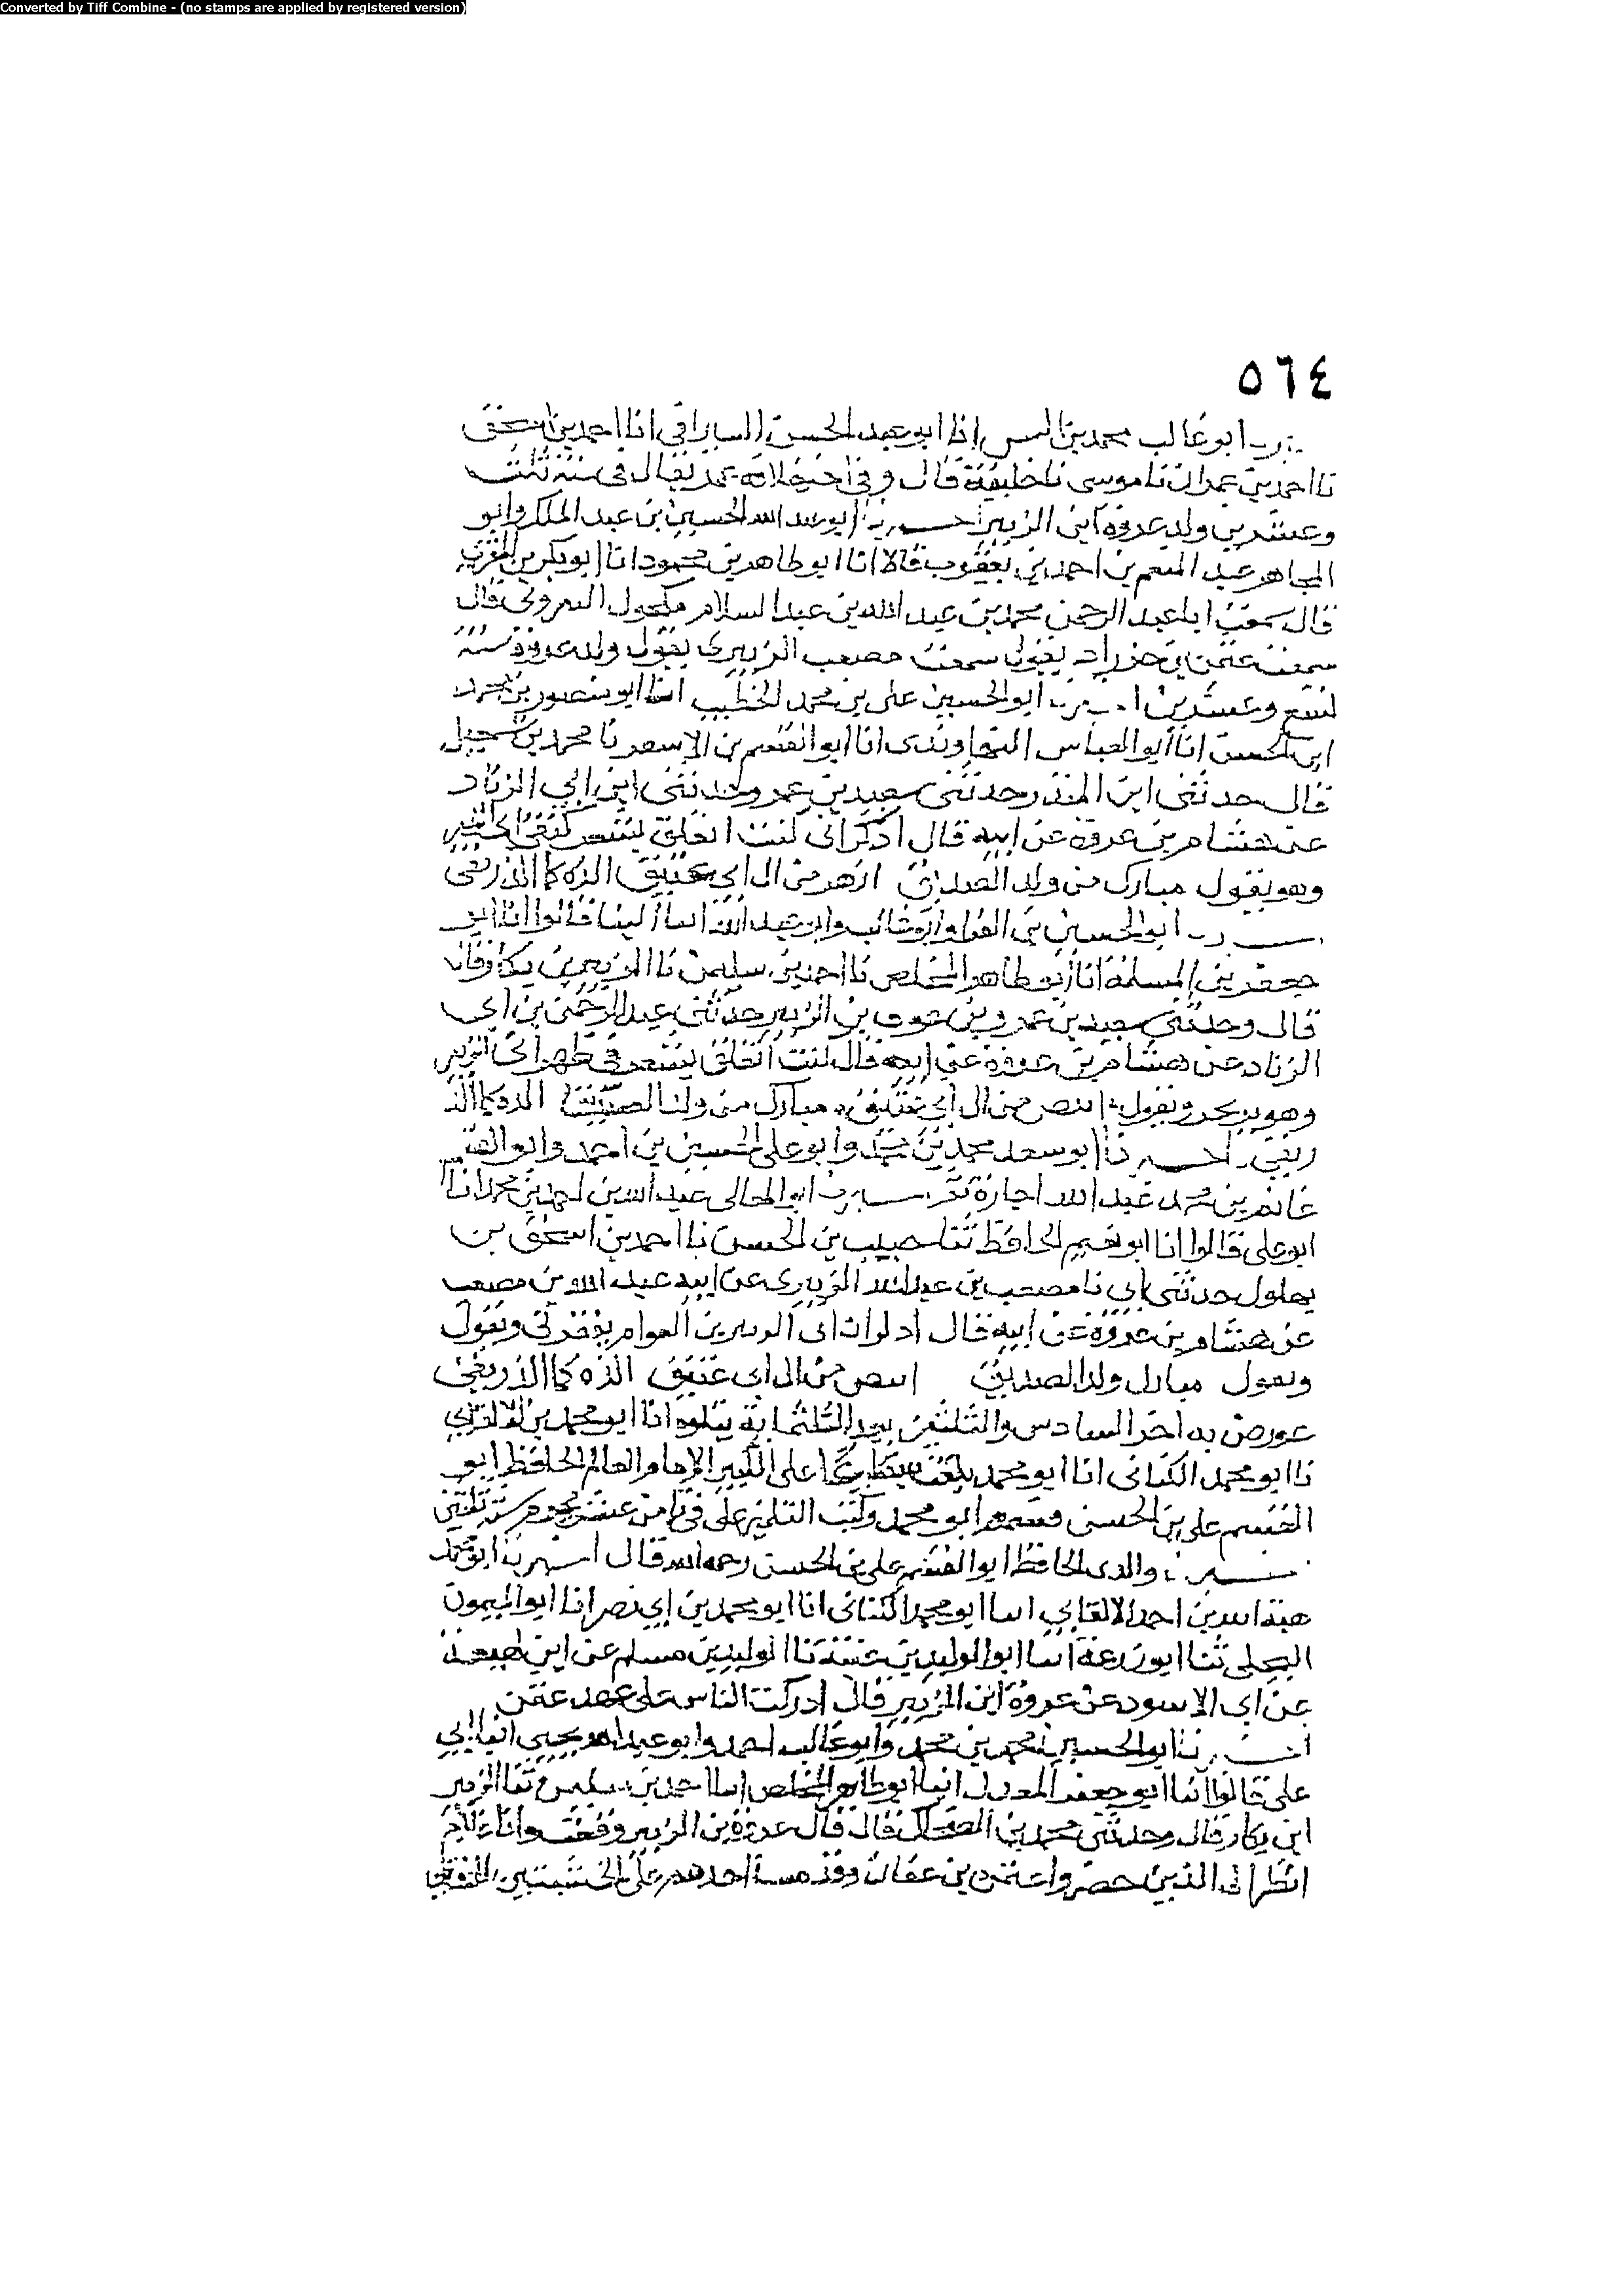 Converted by Tiff Combine - (no stamps are applied by registered version)
٥٦٤
ابو غالب محمد بن الحسن انا ابو الحسن السيرافي انا احمد بن اسحق
نا احمد بن عمران نا موسى نا خليفة قال وفي خلافة عمر يقال في سنة ثلث
وعشرين ولد عروة ابن الزبير ابو عبد الله الحسين بن عبد الملك وابو
عبد المنعم بن احمد بن يعقوب قالا انا ابو طاهر بن محمود انا ابو بكر بن المقرئ
قال سمعت ابا عبد الرحمن محمد بن عبد الله بن عبد السلام مكحول البيروتي قال
سمعت عثمن بن خرزاد يقول سمعت مصعب الزبيري يقول ولد عروة سنة
لتسع وعشرين ابو الحسين علي بن محمد الخطيب انا ابو منصور بن محمد
ابن الحسن انا ابو العباس النهاوندى انا ابو القسم بن الاسعر نا محمد بن اسمعيل
قال حدثني ابن المنذر حدثني سعيد بن عمرو حدثني ابن ابي الزناد
عن هشام بن عروة عن ابيه قال اذكر اني كنت اتعلق بشعر كتفي الزبير
وهو يقول مبارك من ولد الصديق ازهر من ال ابي عتيق الذه كما الذ ريقى
ابو الحسين بن الفراء وابو غالب وابو عبد الله ابنا البنا قالوا انا ابو
جعفر بن المسلمة انا ابو طاهر المخلص نا احمد بن سليمن نا الزبير بن بكار
قال وحدثني سعيد بن عمرو بن الزبير حدثني عبد الرحمن بن ابي
الزناد عن هشام بن عروة عن ابيه قال كنت اتعلق بشعر في ظهر ابي الزبير
وهو يرتجز ويقول ابيض من ال ابي عتيق مبارك من ولد الصديق الذه كما الذ
ريقي ابو سعد محمد بن محمد وابو علي الحسين بن احمد وابو القسم
غانم بن محمد عبد الله اجازة ثم ابو المعالى عبد الله بن احمد بن محمد انا
ابو علي قالوا انا ابو نعيم الحافظ ثنا حبيب بن الحسن نا احمد بن اسحق بن
بهلول حدثني ابي نا مصعب بن عبد الله الزبيري عن ابيه عبد الله بن مصعب
عن هشام بن عروة عن ابيه قال ان ابى الزبير بن العوام ويقول
ويقول مبارك ولد الصديق ابيض من ال ابي عتيق الذه كما الذ ريقي
عورض به اخر السادس والثلثين بعد الثلثماية يتلوه انا ابو محمد بن الاكفاني
نا ابو محمد الكتاني انا ابو محمد بلغت على الكبير الامام العالم الحافظ ابو
القسم علي بن الحسن ابو محمد وكتب القسم بن علي في ثامن عشر
والدى الحافظ ابو القسم علي بن الحسن رحمه الله قال ابو محمد
هبة الله بن احمد الاكفاني انا ابو محمد الكتاني انا ابو محمد بن ابي نصر انا ابو الميمون
البجلي ثنا ابو زرعة ابو الوليد بن عتبة نا الوليد بن مسلم عن ابن لهيعة
عن ابي الاسود عن عروة ابن الزبير قال ادركت الناس على عهد عثمن
ابو الحسين محمد بن محمد وابو غالب احمد وابو عبد الله يحيى ابنا ابي
علي قالوا انبا ابو جعفر المعدل انبا ابو طاهر المخلص انبا احمد بن سليمن ثنا الزبير
ابن بكار قال وحدثني محمد بن الضحاك قال قال عروة بن الزبير وقفت وانا غلام
انظر الى الذين حصروا عثمن بن عفان وقد مشا احدهم على الخشبتين